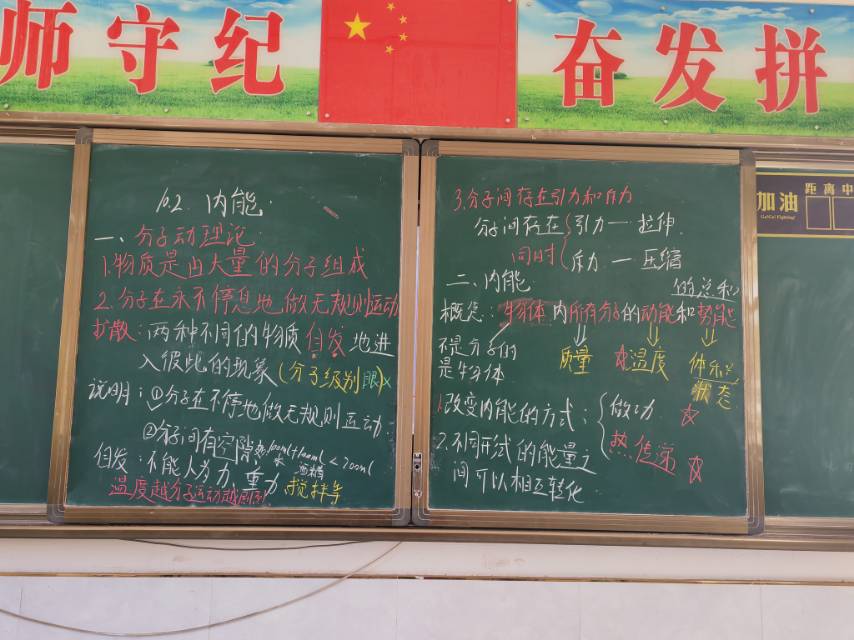 师守纪
奋发拼
加油
距离中
10.2 内能
一、分子动理论
1.物质是由大量的分子组成
2.分子在永不停息地做无规则运动
扩散:两种不同的物质自发地进
入彼此的现象(分子级别
说明:①分子在不停地做无规则运动
②分子间有空隙 100ml+100ml<200ml
水 酒精
自发:不能人为力 重力 搅拌等
温度越 分子运动越剧烈
3.分子间存在引力和斥力
分子间存在 引力—拉伸
同时 斥力—压缩
二、内能
的总和
概念:物体内所有分子的动能和势能
不是分子的 质量 温度 体积
是物体 状态
1.改变内能的方式: 做功
热传递
2.不同形式的能量之
间可以相互转化